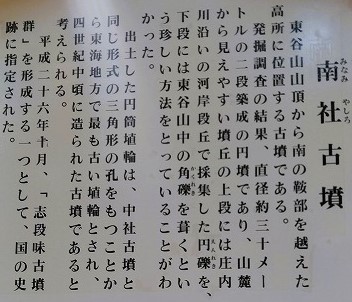 南社古墳
みなみ やしろ
東谷山山頂から南の鞍部を越えた
高所に位置する古墳である。
発掘調査の結果、直径約三十メー
トルの二段築成の円墳であり、山麓
から見えやすい墳丘の上段には庄内
川沿いの河岸段丘で採集した円礫を、
えんれき
下段には東谷山中の角礫を葺くとい
かくれき
う珍しい方法をとっていることがわ
かった。
出土した円筒埴輪は、中社古墳と
同じ形式の三角形の孔をもつことか
ら東海地方で最も古い埴輪とされ、
四世紀中頃に造られた古墳であると
考えられる。
平成二十六年十月、「志段味古墳
群」を形成する一つとして、国の史
跡に指定された。